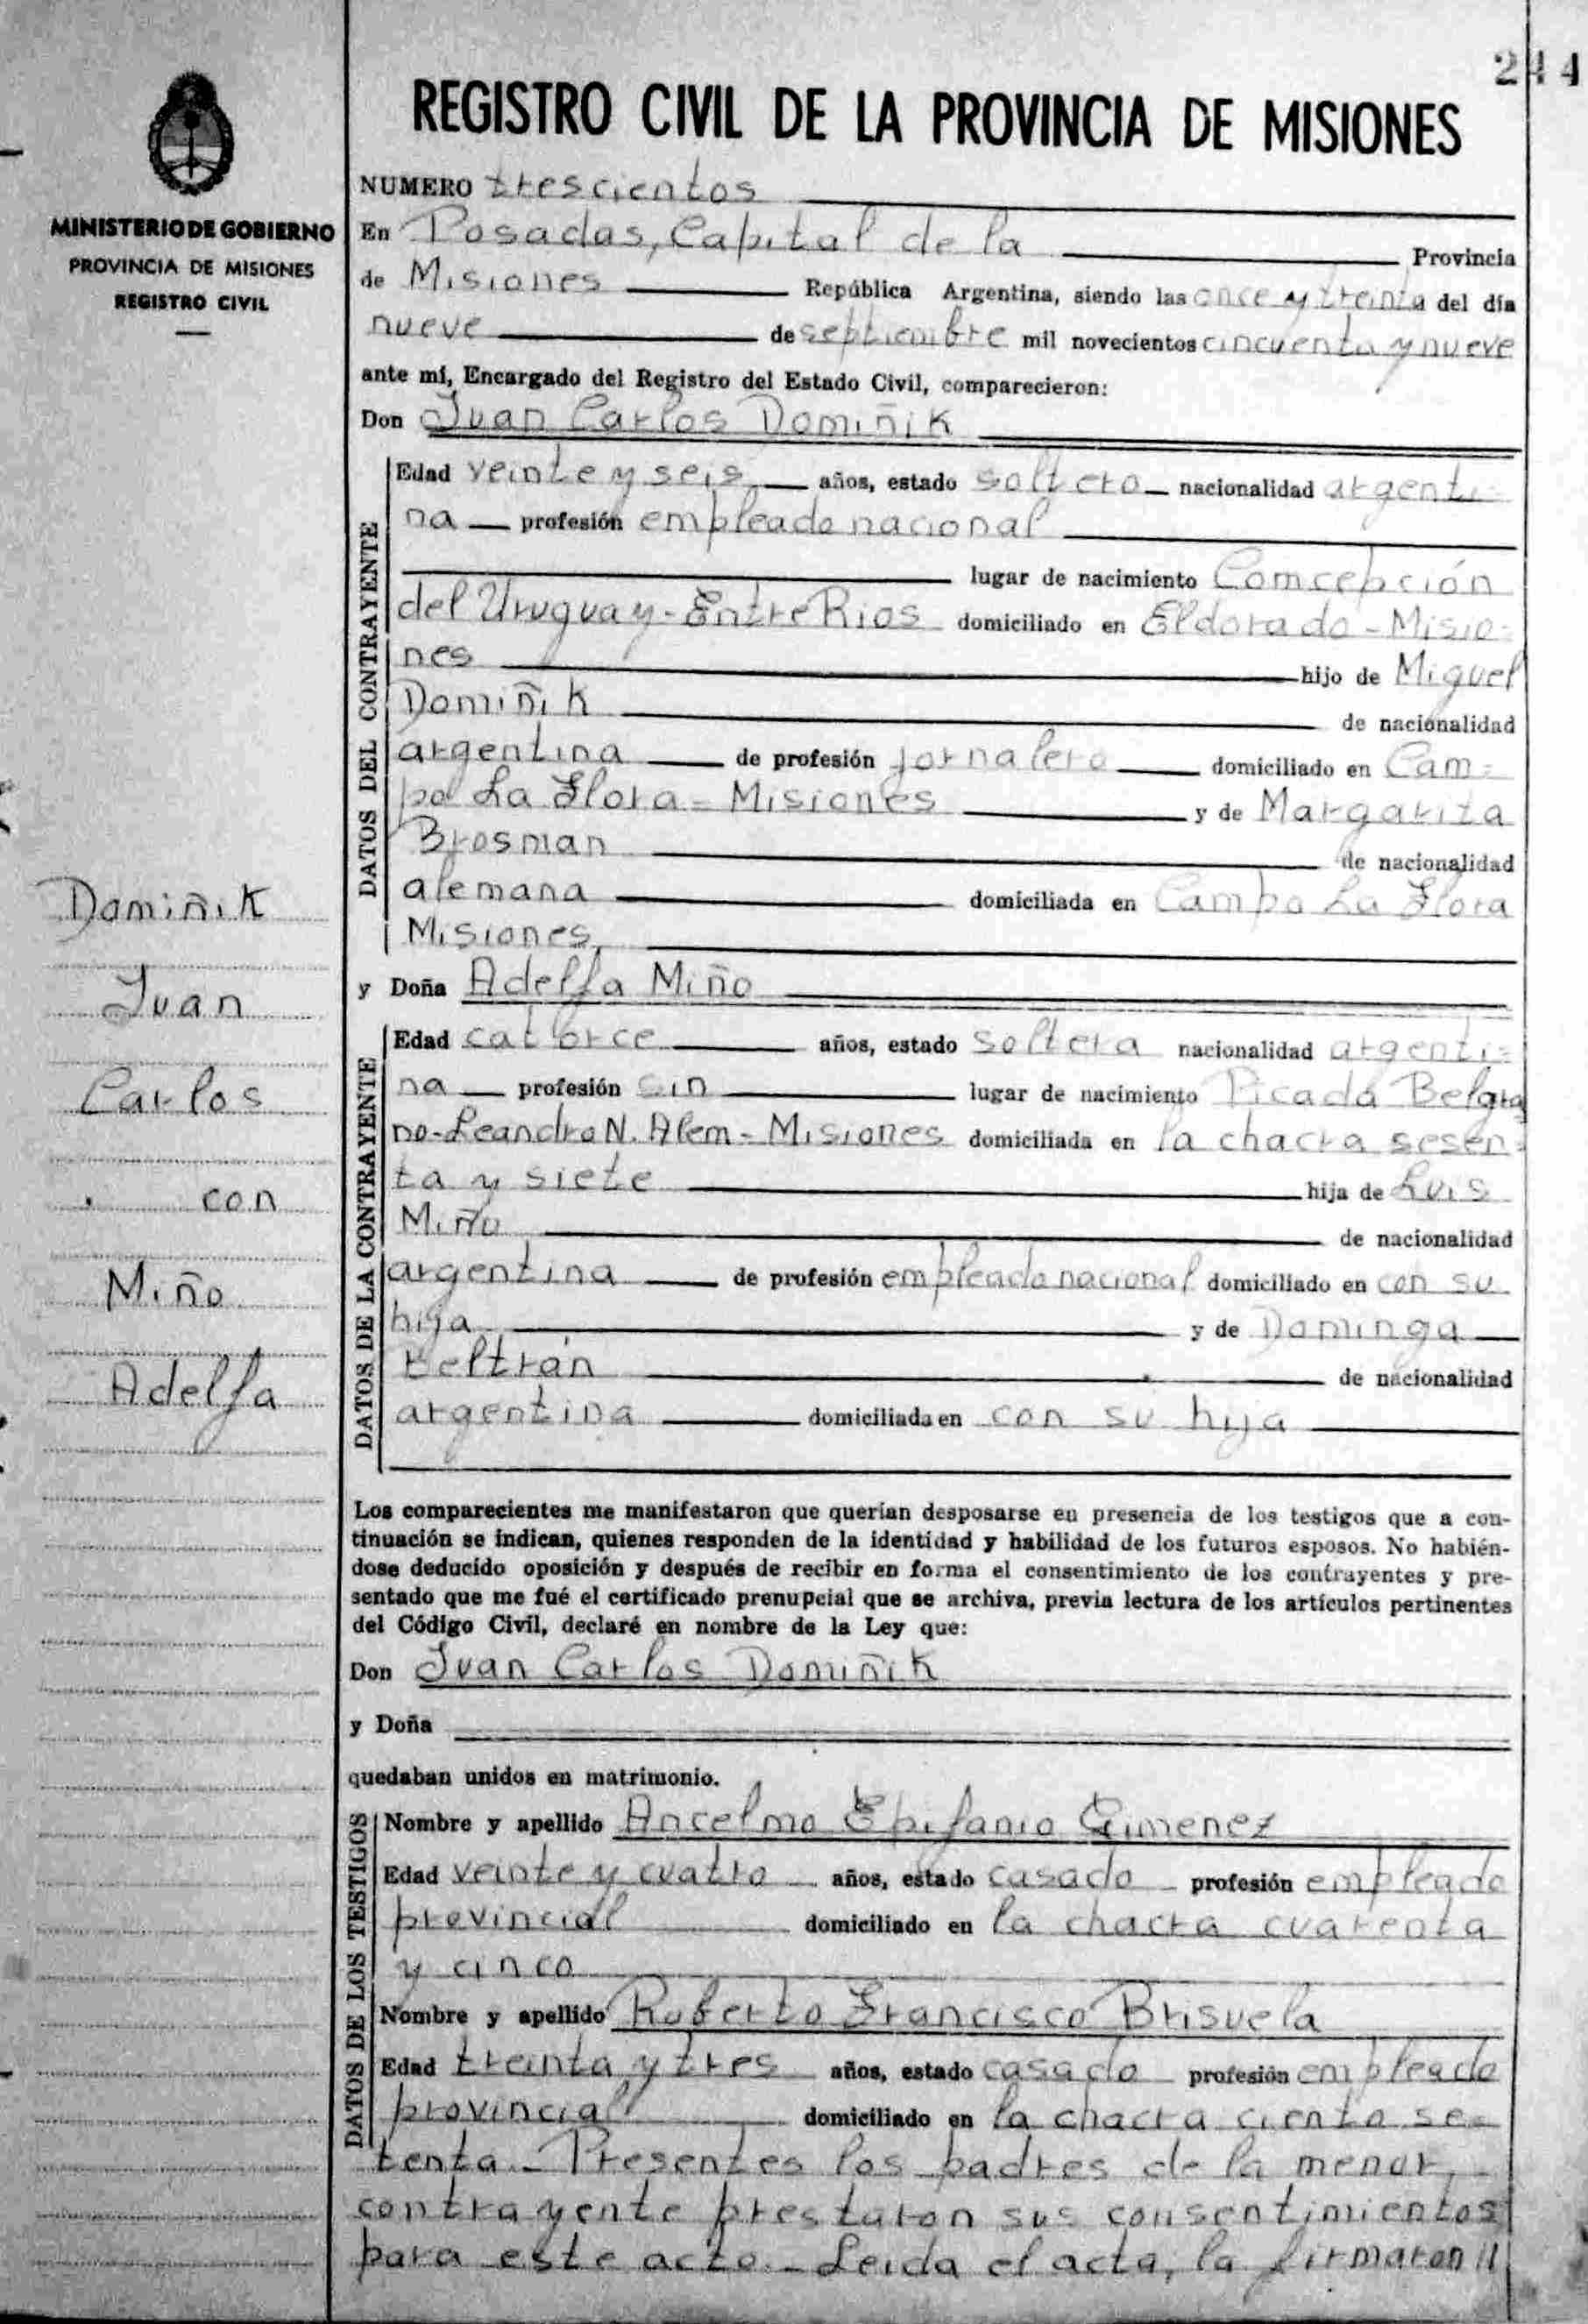 244
REGISTRO CIVIL DE LA PROVINCIA DE MISIONES
MINISTERIO DE GOBIERNO
PROVINCIA DE MISIONES
REGISTRO CIVIL
NUMERO trescientos
En Posadas, Capital de la Provincia
de Misiones República Argentina, siendo las once y treinta del día
nueve de septiembre mil novecientos cincuenta y nueve
ante mí, Encargado del Registro del Estado Civil, comparecieron:
Don Juan Carlos Domiñik
DATOS DEL CONTRAYENTE
Edad veinte y seis años, estado soltero nacionalidad argenti-
na profesión empleado nacional
lugar de nacimiento Comcepción
del Uruguay-Entre Rios domiciliado en Eldorado-Misio-
nes hijo de Miguel
Domiñik de nacionalidad
argentina de profesión jornalero domiciliado en Cam-
po La Flora-Misiones y de Margarita
Brosman de nacionalidad
alemana domiciliada en Campo La Flora
Misiones,
y Doña Adelfa Miño
DATOS DE LA CONTRAYENTE
Edad catorce años, estado soltera nacionalidad argenti-
na profesión sin lugar de nacimiento Picada Belgra
no-Leandro N. Alem-Misiones domiciliada en la chacra sesen-
ta y siete hija de Luis
Miño de nacionalidad
argentina de profesión empleado nacional domiciliado en con su
hija y de Dominga
Beltrán de nacionalidad
argentina domiciliada en con su hija
Domiñik
Juan
Carlos
con
Miño
Adelfa
Los comparecientes me manifestaron que querían desposarse en presencia de los testigos que a con-
tinuación se indican, quienes responden de la identidad y habilidad de los futuros esposos. No habién-
dose deducido oposición y después de recibir en forma el consentimiento de los contrayentes y pre-
sentado que me fué el certificado prenupcial que se archiva, previa lectura de los artículos pertinentes
del Código Civil, declaré en nombre de la Ley que:
Don Juan Carlos Domiñik
y Doña
quedaban unidos en matrimonio.
DATOS DE LOS TESTIGOS
Nombre y apellido Ancelmo Epifanio Gimenez
Edad veinte y cuatro años, estado casado profesión empleado
provincial domiciliado en la chacra cuarenta
y cinco
Nombre y apellido Roberto Francisco Brisuela
Edad treinta y tres años, estado casado profesión empleado
provincial domiciliado en la chacra ciento se-
tenta.- Presentes los padres de la menor,
contrayente prestaron sus consentimientos
para este acto.- Leida el acta, la firmaron //